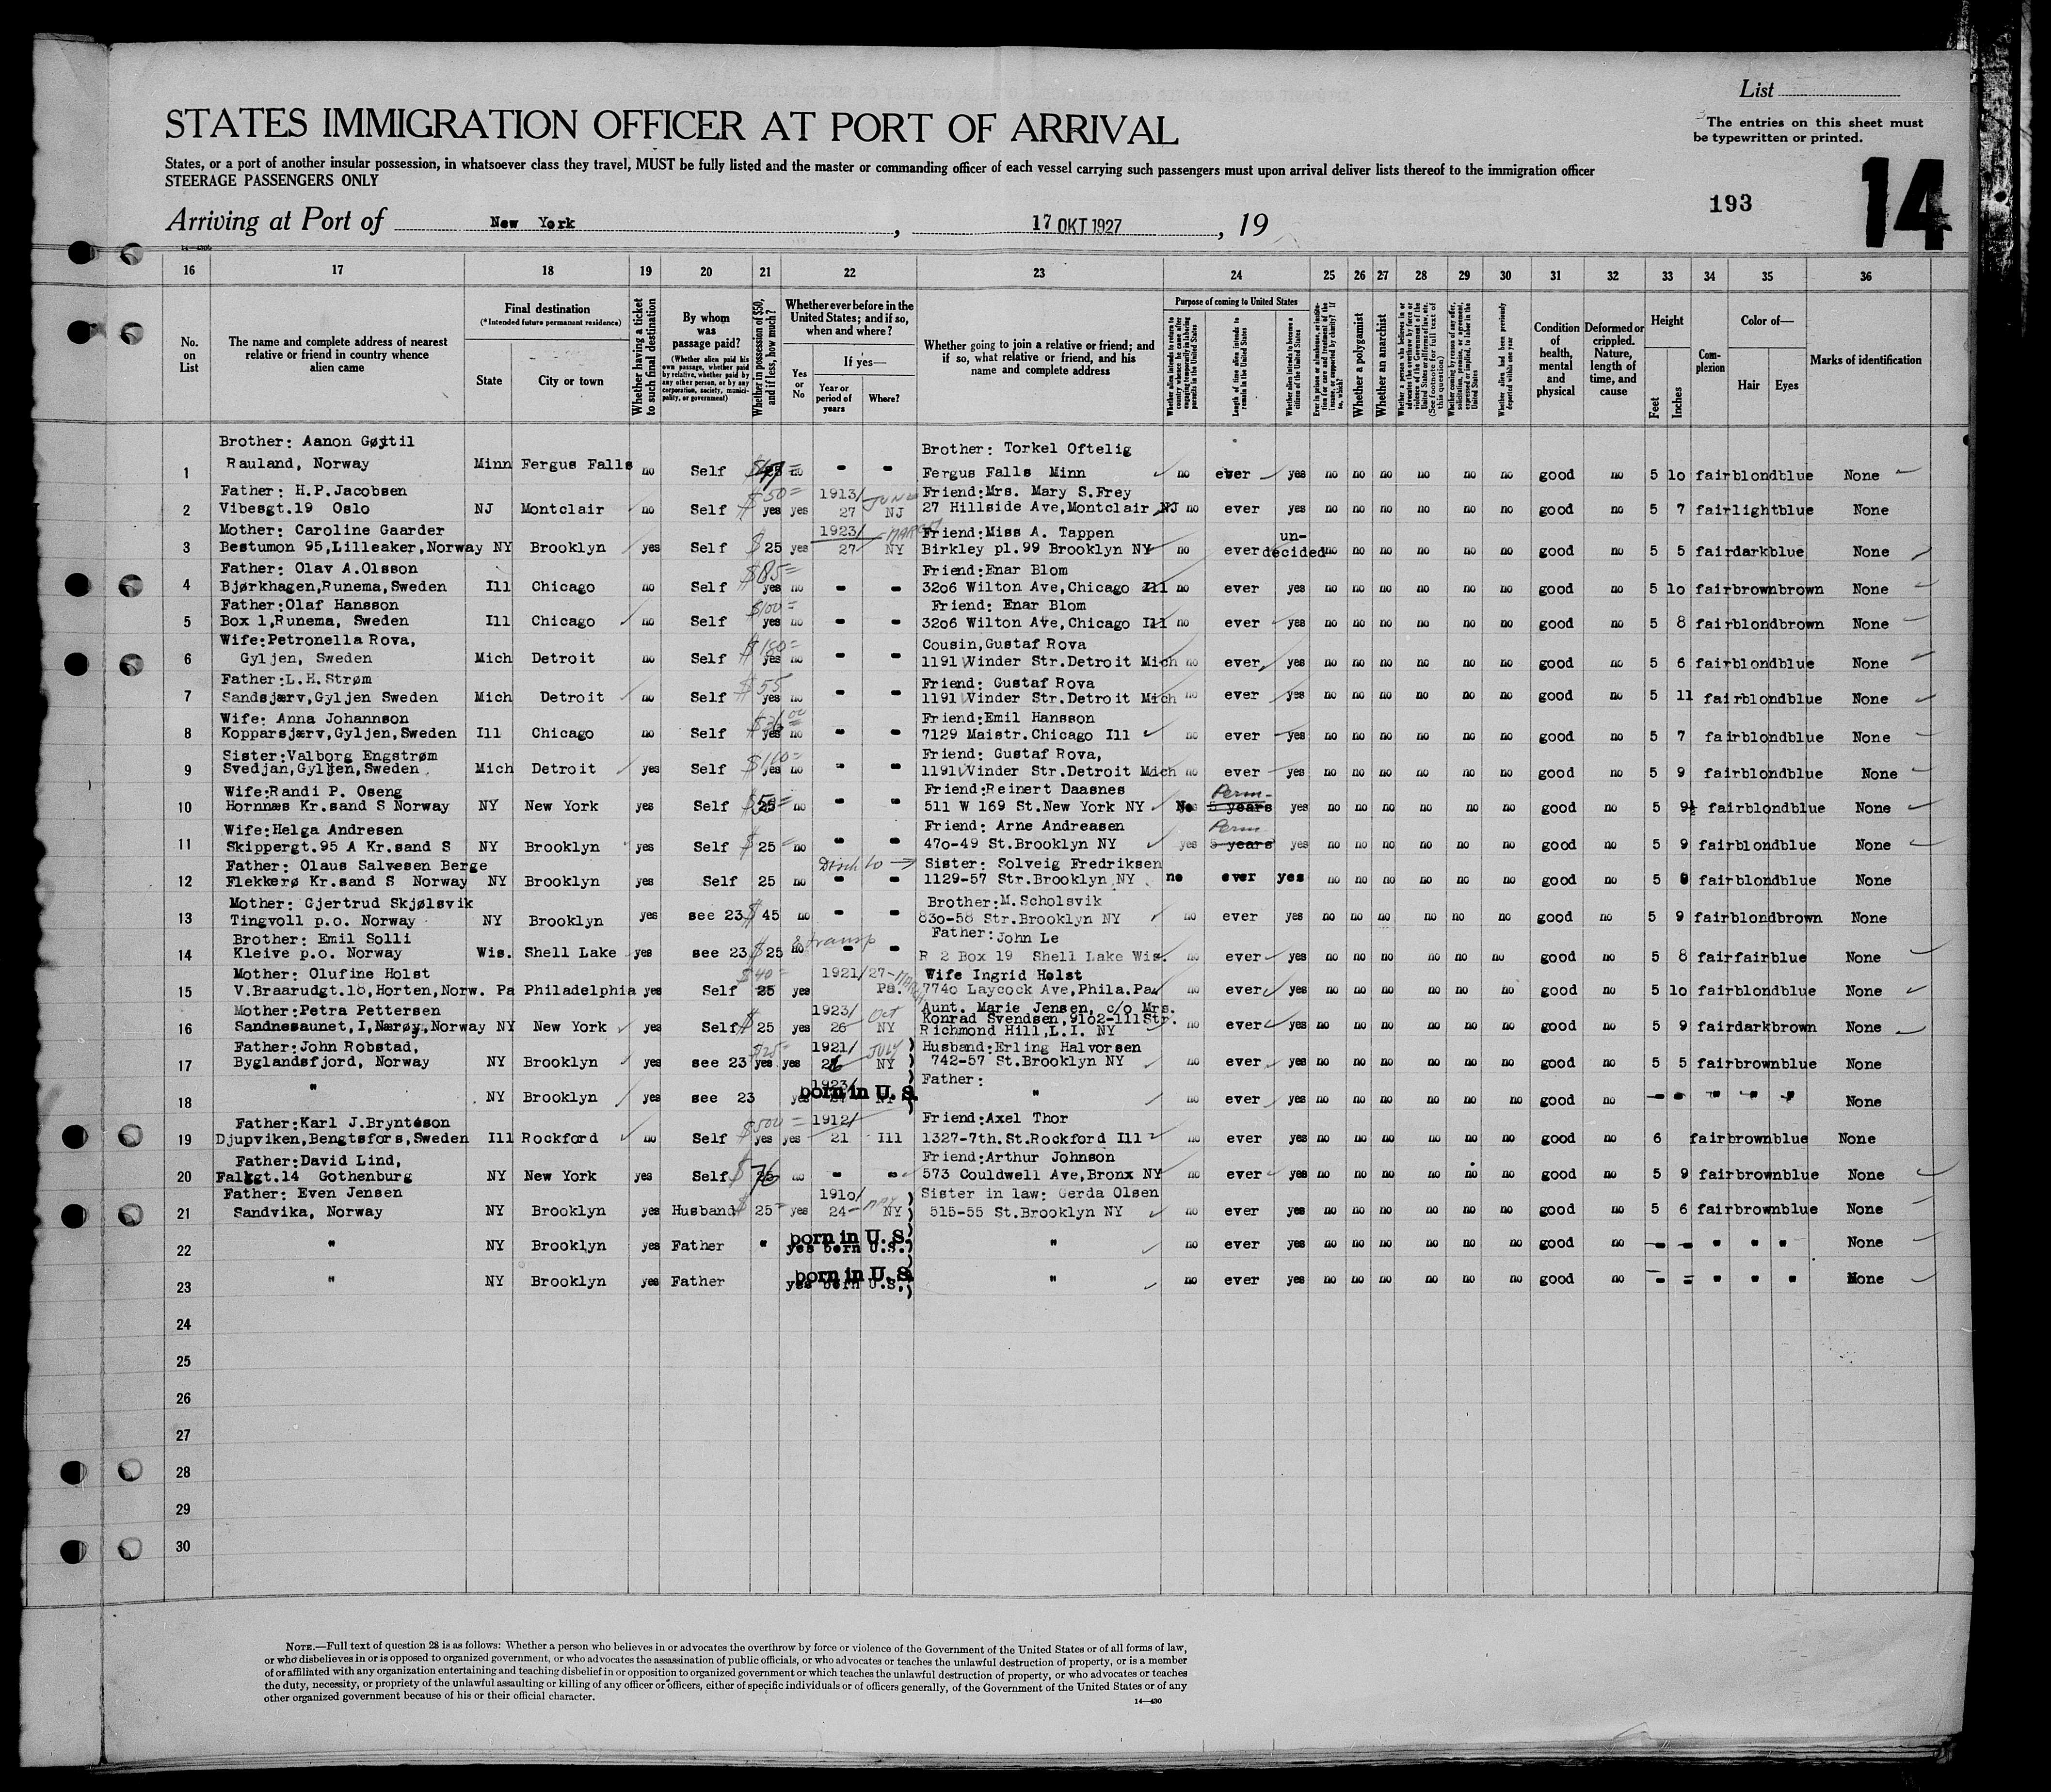 List
The entries on this sheet must
be typewritten or printed.
STATES IMMIGRATION OFFICER AT PORT OF ARRIVAL
States, or a port of another insular possession, in whatsoever class they travel, MUST be fully listed and the master or commanding officer of each vessel carrying such passengers must upon arrival deliver lists thereof to the immigration officer
STEERAGE PASSENGERS ONLY
193
14
Arriving at Port of New York, 17 OKT 1927, 19
16 17 18 19 20 21 22 23 24 25 26 27 28 29 30 31 32 33 34 35 36
No. on List
The name and complete address of nearest relative or friend in country whence alien came
Final destination
(*Intended future permanent residence)
State
City or town
Whether having a ticket to such final destination
By whom was passage paid?
(Whether alien paid his own passage, whether paid by relative, whether paid by any other person, or by any corporation, society, municipality, or government)
Whether in possession of $50, and if less, how much?
Whether ever before in the United States; and if so, when and where?
Yes or No
If yes—
Year or period of years
Where?
Whether going to join a relative or friend; and if so, what relative or friend, and his name and complete address
Purpose of coming to United States
Whether a polygamist
Whether an anarchist
Condition of health, mental and physical
Deformed or crippled. Nature, length of time, and cause
Height
Feet
Inches
Complexion
Color of—
Hair
Eyes
Marks of identification
Brother: Aanon Gøytil Brother: Torkel Oftelig
1 Rauland, Norway Minn Fergus Falls no Self no - - Fergus Falls Minn no ever yes no no no no no no good no 5 10 fair blond blue None
Father: H.P.Jacobsen $50= 1913/ June Friend:Mrs. Mary S.Frey
2 Vibesgt.19 Oslo NJ Montclair no Self yes yes 27 NJ 27 Hillside Ave,Montclair NJ no ever yes no no no no no no good no 5 7 fair light blue None
Mother: Caroline Gaarder 1923/ March Friend:Miss A. Tappen un-
3 Bestumon 95,Lilleaker,Norway NY Brooklyn yes Self $25 yes 27 NY Birkley pl.99 Brooklyn NY no ever decided no no no no no no good no 5 5 fair dark blue None
Father: Olav A.Olsson $85= Friend:Enar Blom
4 Bjørkhagen,Runema,Sweden Ill Chicago no Self yes no - - 3206 Wilton Ave,Chicago Ill no ever yes no no no no no no good no 5 10 fair brown brown None
Father:Olaf Hansson $100= Friend: Enar Blom
5 Box 1,Runema, Sweden Ill Chicago no Self yes no - - 3206 Wilton Ave,Chicago Ill no ever yes no no no no no no good no 5 8 fair blond brown None
Wife:Petronella Rova, $180= Cousin,Gustaf Rova
6 Gyljen, Sweden Mich Detroit no Self yes no - - 1191 Winder Str.Detroit Mich no ever yes no no no no no no good no 5 6 fair blond blue None
Father:L.H.Strøm $55 Friend: Gustaf Rova
7 Sandsjærv,Gyljen Sweden Mich Detroit no Self yes no - - 1191 Winder Str.Detroit Mich no ever yes no no no no no no good no 5 11 fair blond blue None
Wife: Anna Johannson Friend:Emil Hansson
8 Kopparsjærv,Gyljen,Sweden Ill Chicago no Self yes no - - 7129 Maistr.Chicago Ill no ever yes no no no no no no good no 5 7 fair blond blue None
Sister:Valborg Engstrøm Friend: Gustaf Rova,
9 Svedjan,Gyljen,Sweden Mich Detroit yes Self yes no - - 1191 Winder Str.Detroit Mich no ever yes no no no no no no good no 5 9 fair blond blue None
Wife:Randi P. Oseng Friend:Reinert Daasnes Perm-
10 Hornnæs Kr.sand S Norway NY New York yes Self $50= no - - 511 W 169 St.New York NY No 5 years yes no no no no no no good no 5 9½ fair blond blue None
Wife:Helga Andresen Friend: Arne Andreasen Perm
11 Skippergt.95 A Kr.sand S NY Brooklyn yes Self $25= no - - 470-49 St.Brooklyn NY yes 5 years yes no no no no no no good no 5 9 fair blond blue None
Father: Olaus Salvesen Berge Disch to → Sister: Solveig Fredriksen
12 Flekkerø Kr.sand S Norway NY Brooklyn yes Self 25 no - - 1129-57 Str.Brooklyn NY no ever yes no no no no no no good no 5 fair blond blue None
Mother: Gjertrud Skjølsvik Brother:M.Scholsvik
13 Tingvoll p.o. Norway NY Brooklyn yes see 23 $45 no - - 830-58 Str.Brooklyn NY no ever yes no no no no no no good no 5 9 fair blond brown None
Brother: Emil Solli Father:John Le
14 Kleive p.o. Norway Wis. Shell Lake yes see 23 $25 no - - R 2 Box 19 Shell Lake Wis. no ever yes no no no no no no good no 5 8 fair fair blue None
Mother: Olufine Holst $40= 1921/27- March Wife Ingrid Holst
15 V.Braarudgt.18,Horten,Norw. Pa Philadelphia yes Self 25 yes Pa. 7740 Laycock Ave,Phila.Pa no ever yes no no no no no no good no 5 10 fair blond blue None
Mother:Petra Pettersen 1923/ Oct Aunt. Marie Jensen, c/o Mrs.
Konrad Svendsen,9162-111Str.
16 Sandnesaunet,I,Nærøy,Norway NY New York yes Self $25 yes 26 NY Richmond Hill,L.I. NY no ever yes no no no no no no good no 5 9 fair dark brown None
Father:John Robstad, $25= 1921/ July Husband:Erling Halvorsen
17 Byglandsfjord, Norway NY Brooklyn yes see 23 yes yes NY 742-57 St.Brooklyn NY no ever yes no no no no no no good no 5 5 fair brown blue None
" 1923/ born in U. S. Father:
18 NY Brooklyn yes see 23 yes " no ever yes no no no no no no good no - - " " " None
Father:Karl J.Bryntéson $500= 1912/ Friend:Axel Thor
19 Djupviken,Bengtsfors,Sweden Ill Rockford no Self yes yes 21 Ill 1327-7th.St.Rockford Ill no ever yes no no no no no no good no 6 fair brown blue None
Father:David Lind, Friend:Arthur Johnson
20 Falkgt.14 Gothenburg NY New York yes Self $76 no - - 573 Couldwell Ave,Bronx NY no ever yes no no no no no no good no 5 9 fair brown blue None
Father: Even Jensen 1910/ May Sister in law: Gerda Olsen
21 Sandvika, Norway NY Brooklyn yes Husband $25= yes 24- NY 515-55 St.Brooklyn NY no ever yes no no no no no no good no 5 6 fair brown blue None
born in U. S.
22 " NY Brooklyn yes Father " yes born U.S. " no ever yes no no no no no no good no - - " " " None
born in U. S.
23 " NY Brooklyn yes Father yes born U.S. " no ever yes no no no no no no good no - = " " " None
24
25
26
27
28
29
30
NOTE.—Full text of question 28 is as follows: Whether a person who believes in or advocates the overthrow by force or violence of the Government of the United States or of all forms of law,
or who disbelieves in or is opposed to organized government, or who advocates the assassination of public officials, or who advocates or teaches the unlawful destruction of property, or is a member
of or affiliated with any organization entertaining and teaching disbelief in or opposition to organized government or which teaches the unlawful destruction of property, or who advocates or teaches
the duty, necessity, or propriety of the unlawful assaulting or killing of any officer or officers, either of specific individuals or of officers generally, of the Government of the United States or of any
other organized government because of his or their official character.
14—430